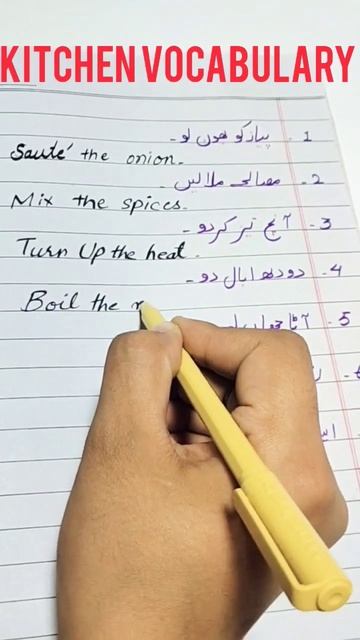 KITCHEN VOCABULARY
1. پیاز کو بھون لو۔
Sauté the onion.
2. مصالحے ملالیں۔
Mix the spices.
3. آنچ تیز کر دو۔
Turn Up the heat.
4. دودھ ابال دو۔
Boil the
5. آٹا